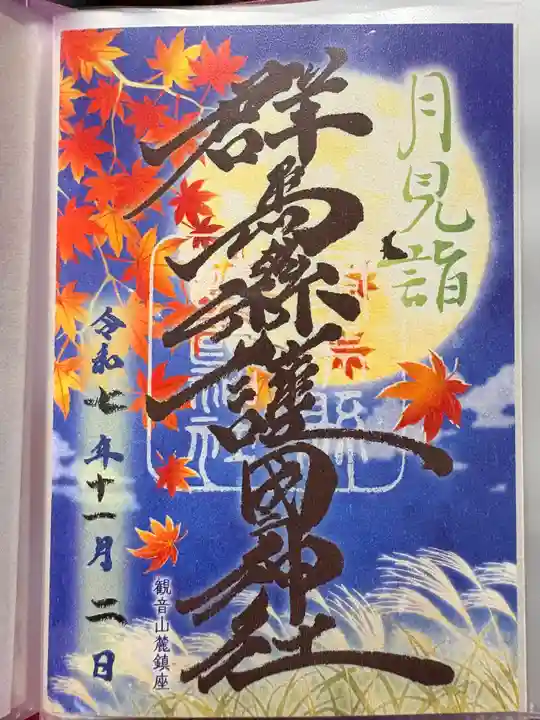 月見詣
群馬縣護國神社
令和七年十一月二日
観音山麓鎮座